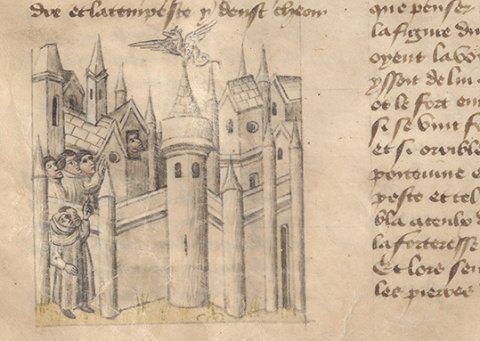 dre et la tempeste y deust cheoir
que penser
la figure du
oyent la vo
yssoit de lui
et le fort en
si se vint f
et si orrible
pontoume e
peste et tel
la forteresse
Et lors sen
les pierres